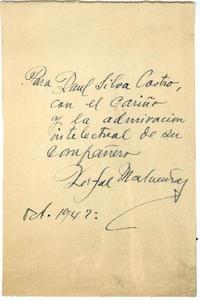 Para Raul Silva Castro,
con el cariño
y la admiracion
intelectual de su
compañero
Oct. 1947: